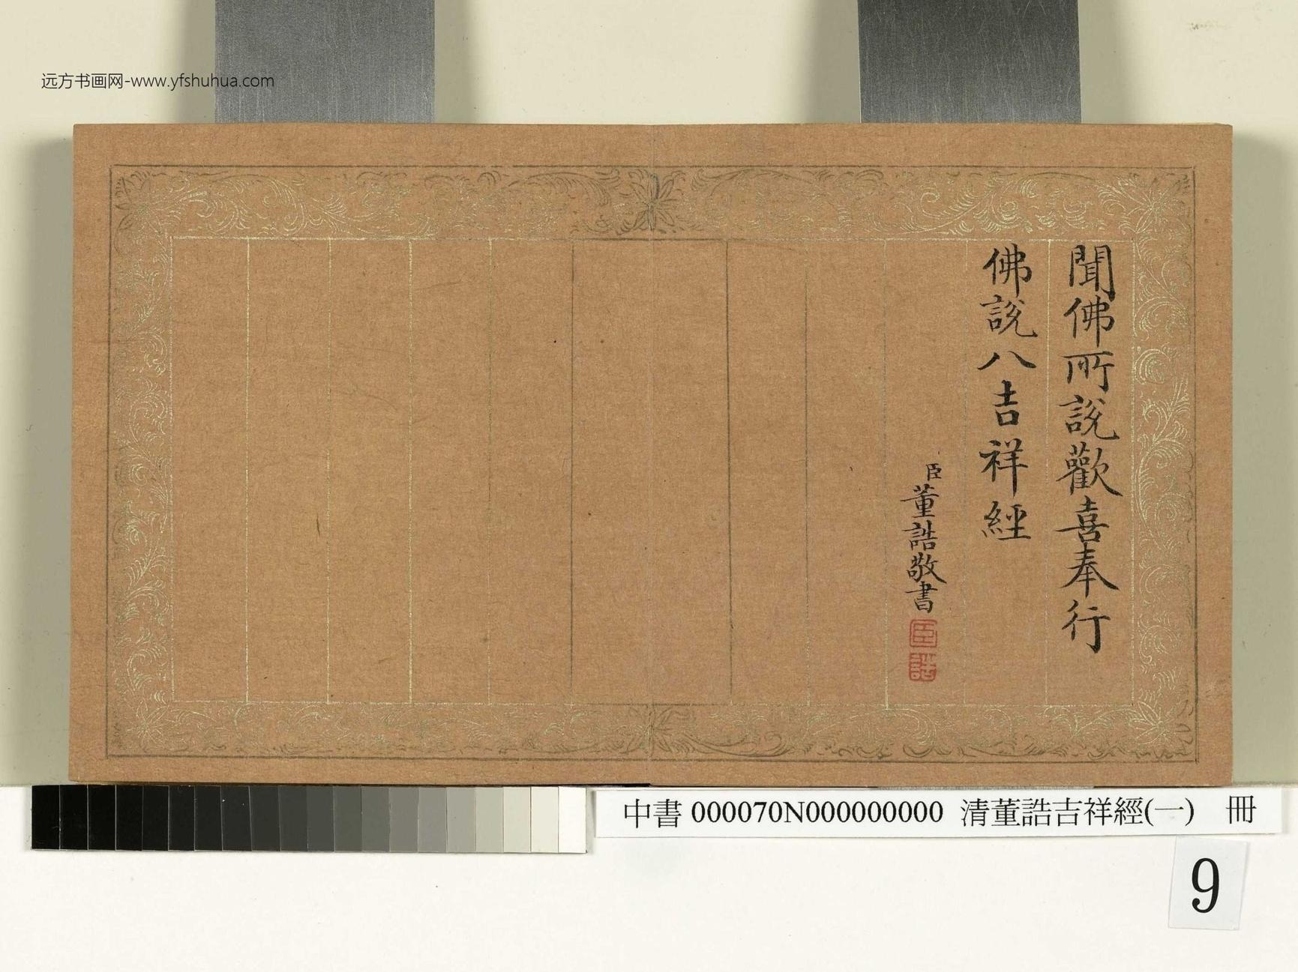 远方书画网-www.yfshuhua.com
聞佛所說歡喜奉行
佛說八吉祥經
臣董誥敬書
臣
誥
中書 000070N000000000 清董誥吉祥經(一) 冊
9